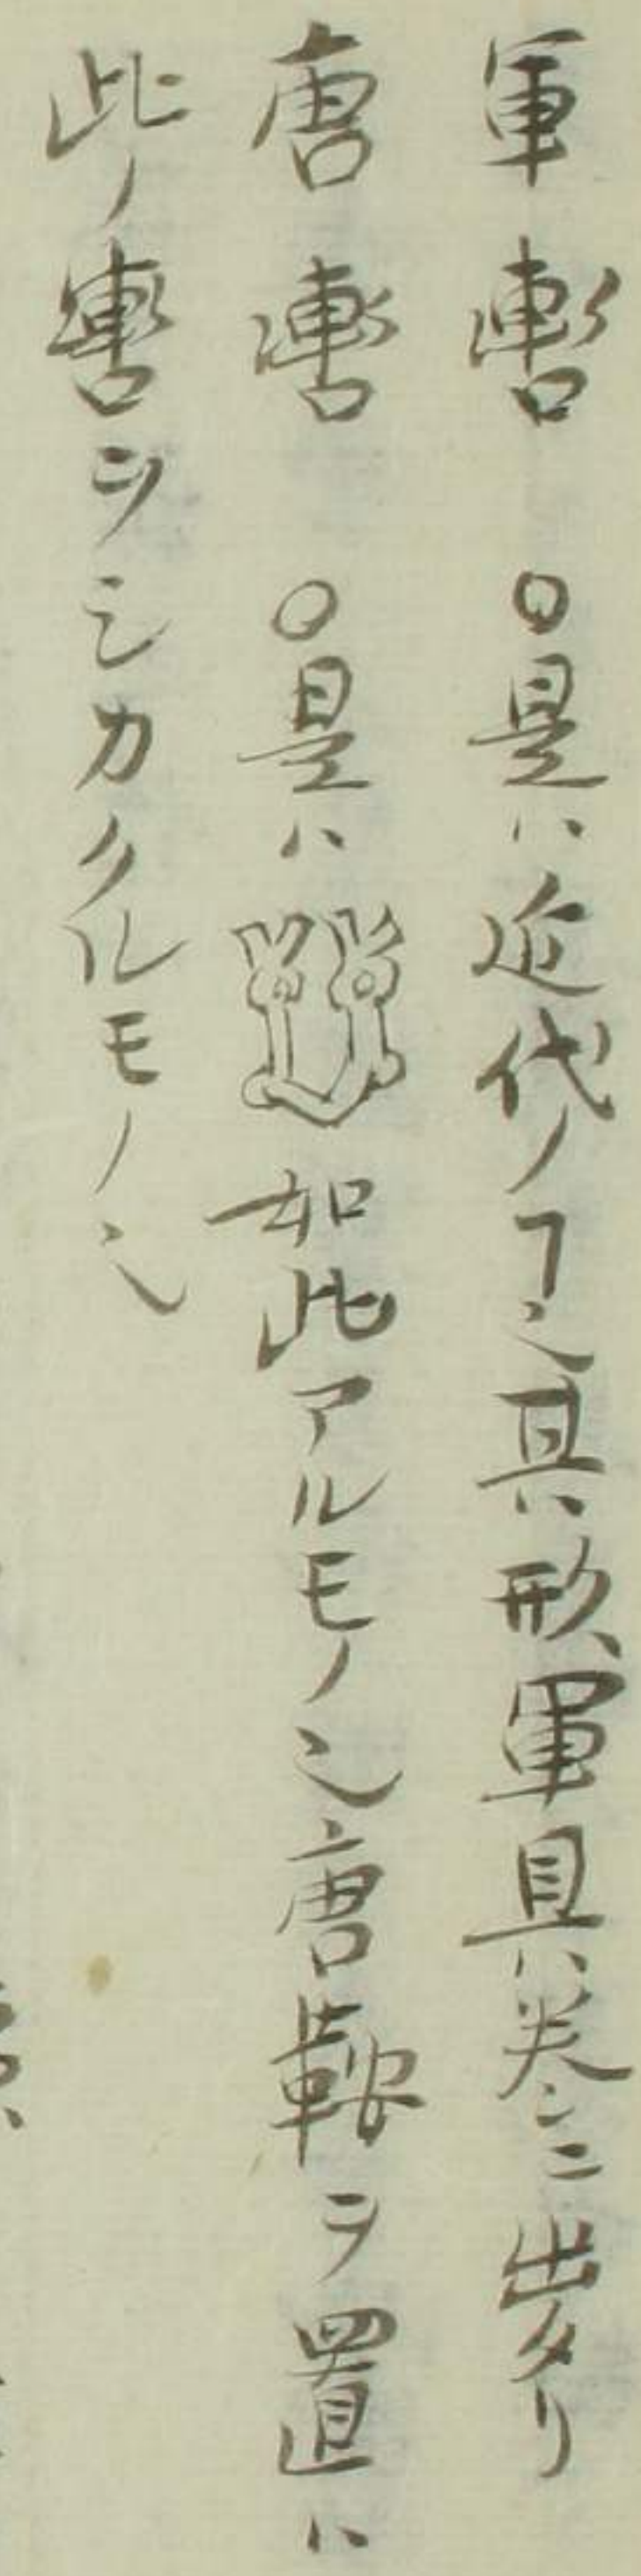 軍轡　○是ハ近代ノヿ也其形軍具ノ巻ニ出タリ
唐轡　○是ハ如此アルモノ也唐鞍ヲ置ニハ
此ノ轡ヲシカクルモノ也